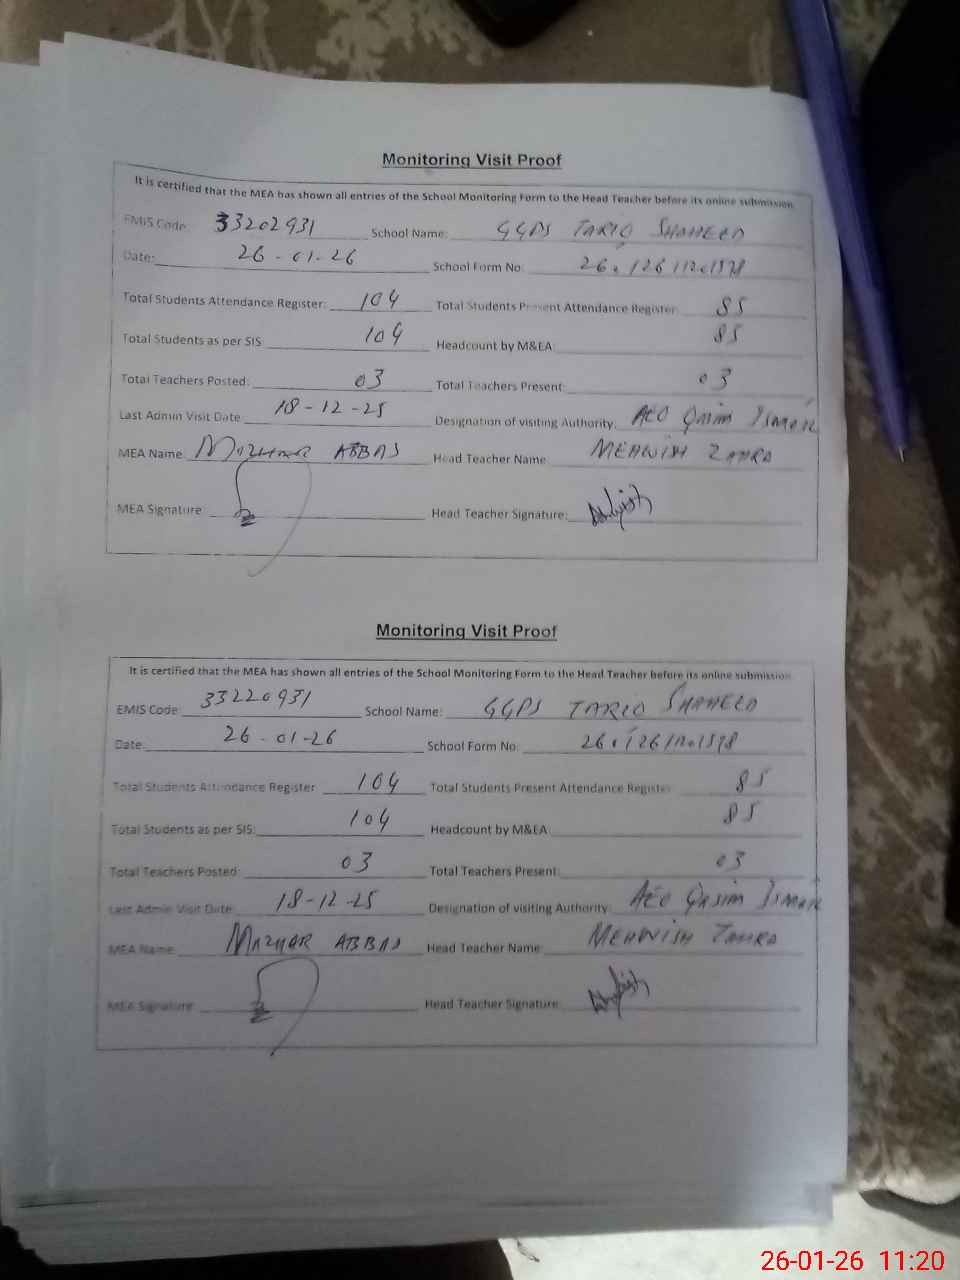 Monitoring Visit Proof
It is certified that the MEA has shown all entries of the School Monitoring Form to the Head Teacher before its online submission.
EMIS Code 33202931 School Name: GGPS TARIQ SHAHEED
Date: 26-01-26 School Form No: 26.126
Total Students Attendance Register: 104 Total Students Present Attendance Register: 85
Total Students as per SIS 104 Headcount by M&EA: 85
Total Teachers Posted: 03 Total Teachers Present: 03
Last Admin Visit Date: 18-12-25 Designation of visiting Authority: AEO Qasim Ismail
MEA Name: MAZHAR ABBAS Head Teacher Name MEHWISH ZAHRA
MEA Signature Head Teacher Signature:
Monitoring Visit Proof
It is certified that the MEA has shown all entries of the School Monitoring Form to the Head Teacher before its online submission.
EMIS Code: 33220931 School Name: GGPS TARIQ SHAHEED
Date: 26-01-26 School Form No: 26.126
Total Students Attendance Register 104 Total Students Present Attendance Register 85
Total Students as per SIS: 104 Headcount by M&EA 85
Total Teachers Posted: 03 Total Teachers Present: 03
Last Admin Visit Date: 18-12-25 Designation of visiting Authority: AEO Qasim Ismail
MEA Name: MAZHAR ABBAS Head Teacher Name: MEHWISH ZAHRA
MEA Signature Head Teacher Signature:
26-01-26 11:20